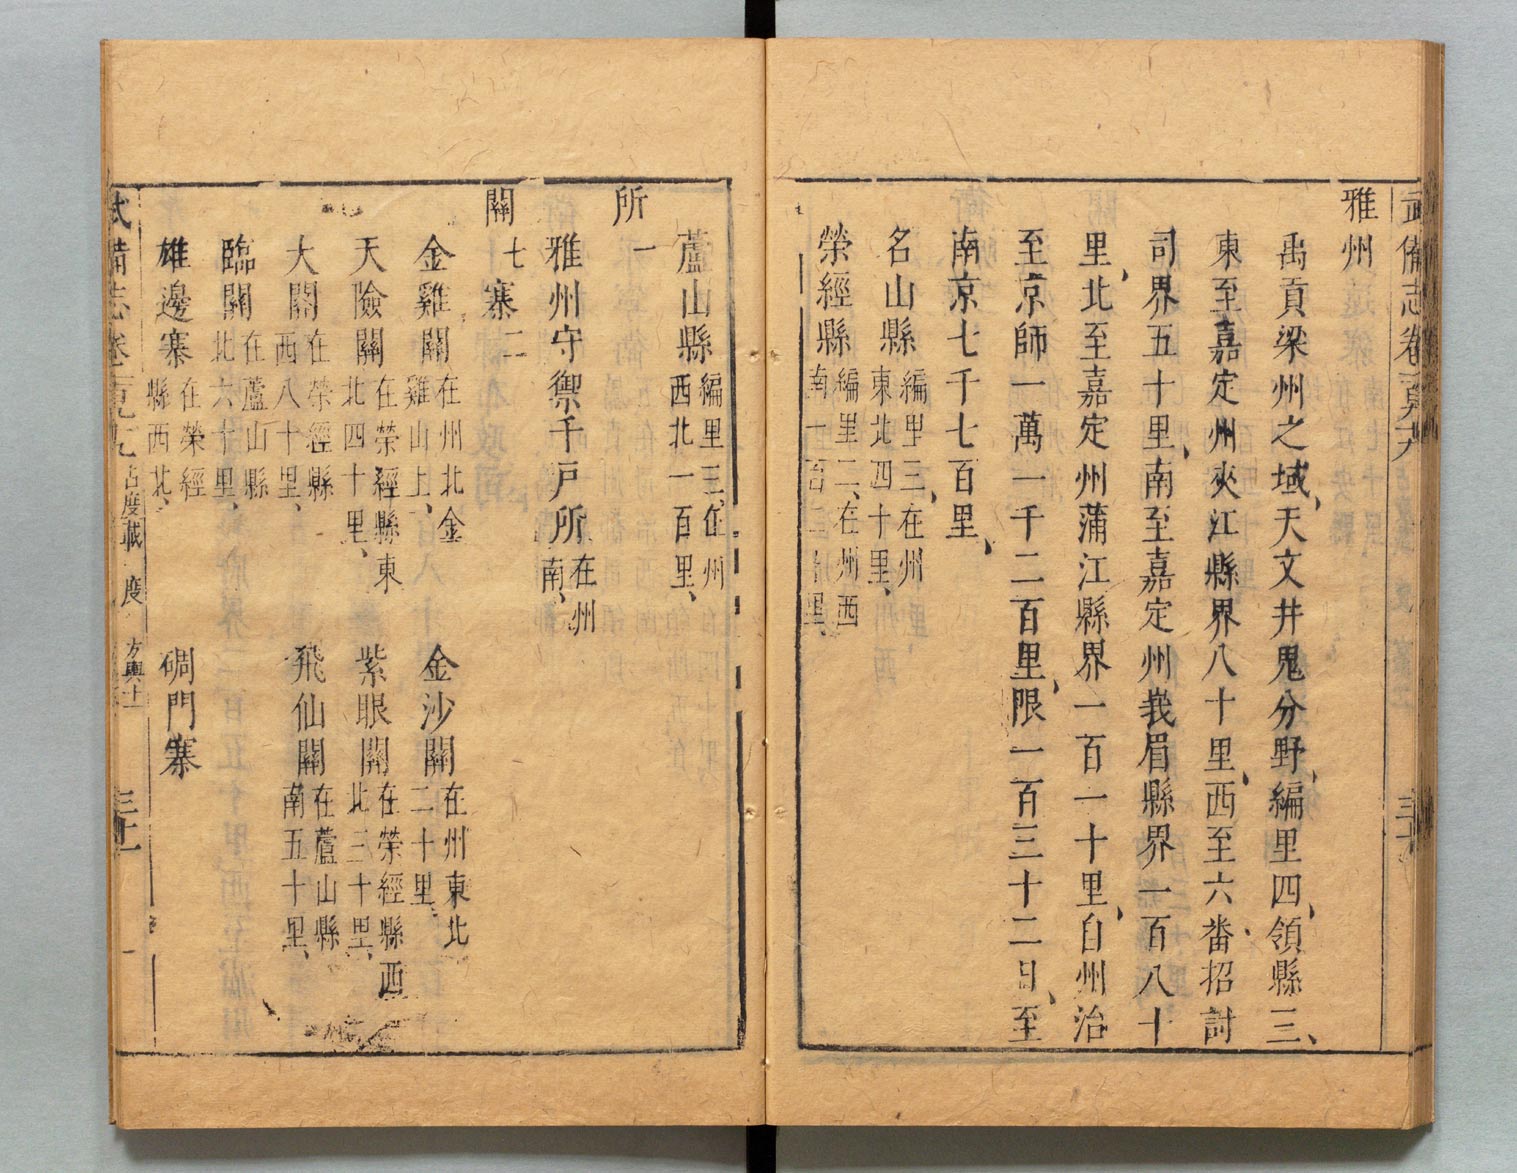 雅州
禹貢梁州之域、天文井鬼分野、編里四、領縣三、
東至嘉定州夾江縣界八十里、西至六番招討
司界五十里、南至嘉定州峩眉縣界一百八十
里、北至嘉定州蒲江縣界一百一十里、自州治
至京師一萬一千二百里、限一百三十二日、至
南京七千七百里、
名山縣 編里三、在州東北四十里、
榮經縣 編里二、在州西南一百二十里、
蘆山縣 編里三、在州西北一百里、
所一
雅州守禦千戸所 在州南、
關七寨二
金雞關 在州北金雞山上、 金沙關 在州東北二十里、
天險關 在榮經縣東北四十里、 紫眼關 在榮經縣西北三十里、
大關 在榮經縣西八十里、 飛仙關 在蘆山縣南五十里、
臨關 在蘆山縣北六十里、
雄邊寨 在榮經縣西北、 碉門寨
武備志卷 占度載 度 方輿十